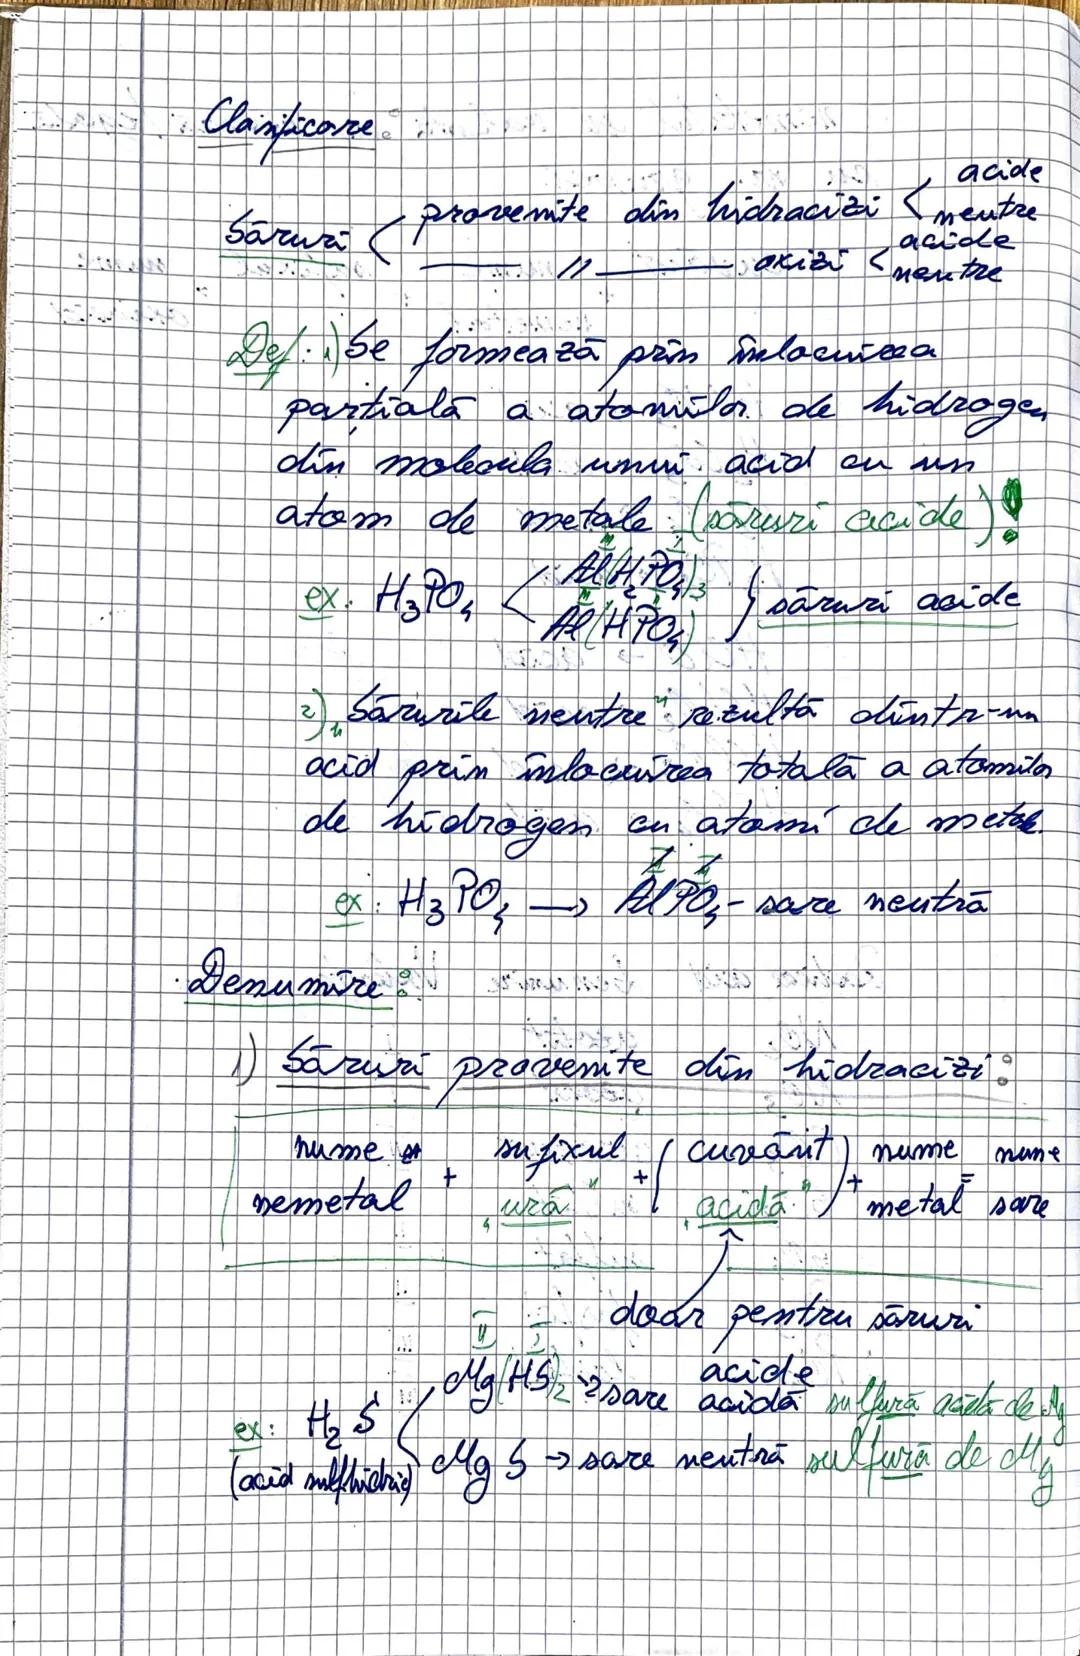 Clasificare:
Săruri < provenite din hidracizi < acide
neutre
—— // —— oxizi < acide
neutre
Def: 1) Se formează prin înlocuirea
parțială a atomilor de hidrogen
din molecula unui acid cu un
atom de metale (săruri acide)!
ex: H₃PO₄ < Al(H₂PO₄)₃
Al(HPO₄) } săruri acide
2) „Sărurile neutre" rezultă dintr-un
acid prin înlocuirea totală a atomilor
de hidrogen cu atomi de metale.
III III
ex: H₃PO₄ → AlPO₄ - sare neutră
Denumire:
1) Săruri provenite din hidracizi:
nume nemetal + sufixul „ură" + (cuvânt „acidă") + nume metal = nume sare
doar pentru săruri
acide
II I
ex: H₂S < Mg(HS)₂ → sare acidă sulfură acidă de Mg
(acid sulfhidric) MgS → sare neutră sulfură de Mg